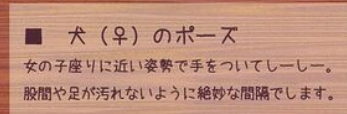 ■ 犬（♀）のポーズ
女の子座りに近い姿勢で手をついてしーしー。
股間や足が汚れないように絶妙な間隔でします。